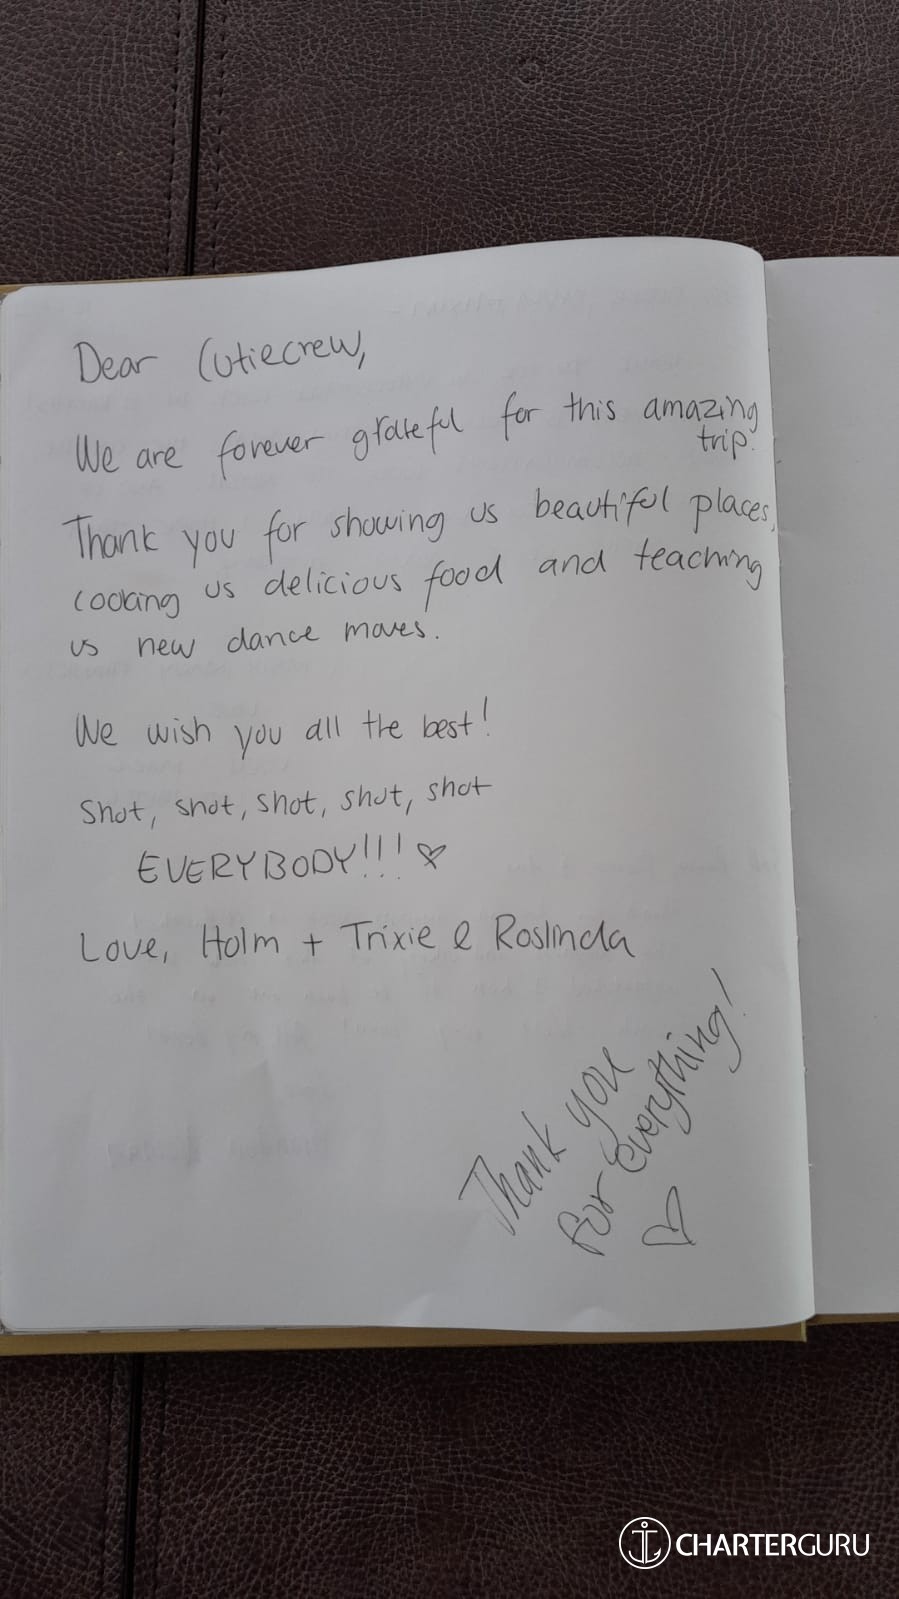 Dear Cutiecrew,
We are forever grateful for this amazing
trip.
Thank you for showing us beautiful places,
cooking us delicious food and teaching
us new dance moves.
We wish you all the best!
Shot, shot, shot, shot, shot
EVERYBODY!!! ♡
Love, Holm + Trixie & Roslinda
Thank you
for everything!
♡
CHARTERGURU